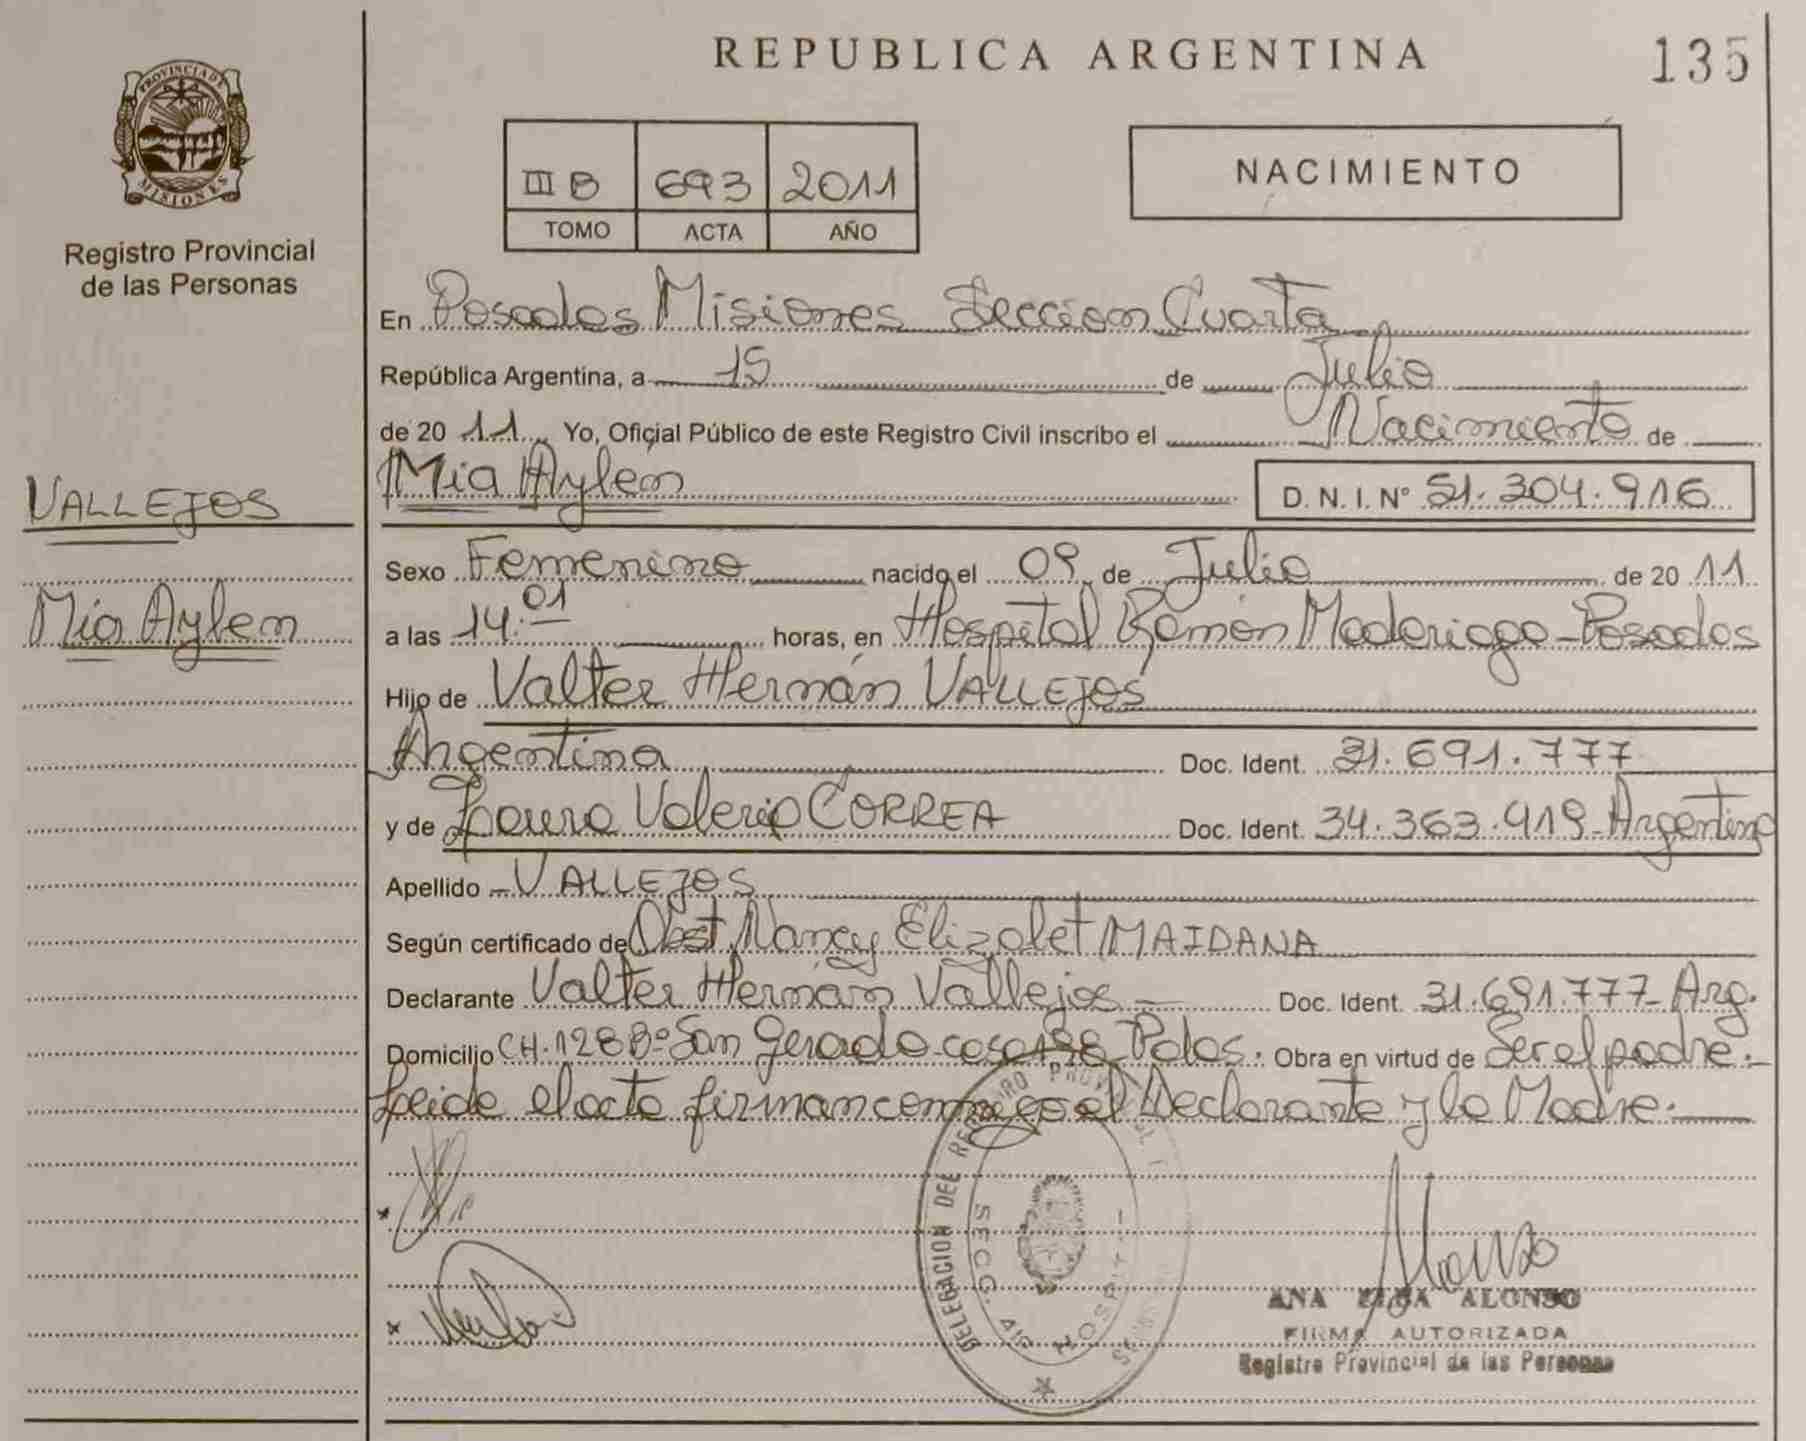 REPUBLICA ARGENTINA
135
PROVINCIA DE MISIONES
Registro Provincial
de las Personas
III B 693 2011
TOMO ACTA AÑO
NACIMIENTO
En Posadas Misiones Seccion Cuarta
República Argentina, a 15 de Julio
de 20 11 Yo, Oficial Público de este Registro Civil inscribo el Nacimiento de
Mia Aylen
D. N. I. Nº 51.304.916
VALLEJOS
Mia Aylen
Sexo Femenino nacido el 09 de Julio de 20 11
a las 14:01 horas, en Hospital Ramón Madariaga - Posadas
Hijo de Valter Hernán VALLEJOS
Argentina Doc. Ident. 31.691.777
y de Laura Valeria CORREA Doc. Ident. 34.363.919 - Argentina
Apellido - VALLEJOS
Según certificado de Obst. Nancy Elizabet MAIDANA
Declarante Valter Hernán Vallejos - Doc. Ident. 31.691.777 - Arg.
Domicilio CH. 128 Bº San Gerado casa Pdas. Obra en virtud de Ser el padre.-
Leida el acta firman conmigo el Declarante y la Madre.
DELEGACION DEL REGISTRO
SECC. 4ta
ANA ALONSO
FIRMA AUTORIZADA
Registro Provincial de las Personas